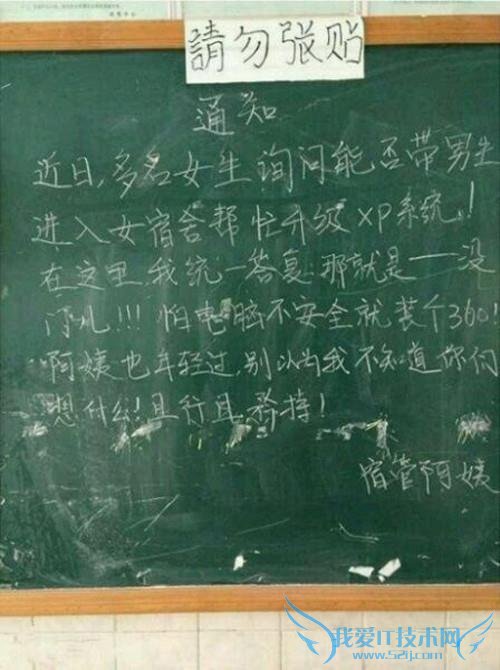 請勿张贴
通知
近日,多名女生询问能否带男生
进入女宿舍帮忙升级xp系统!
在这里我统一答复.那就是——没
门儿!!!怕电脑不安全就装个360!
阿姨也年轻过,别以为我不知道你们
想什么!且行且矜持!
宿管阿姨
我爱IT技术网
www.52ij.com